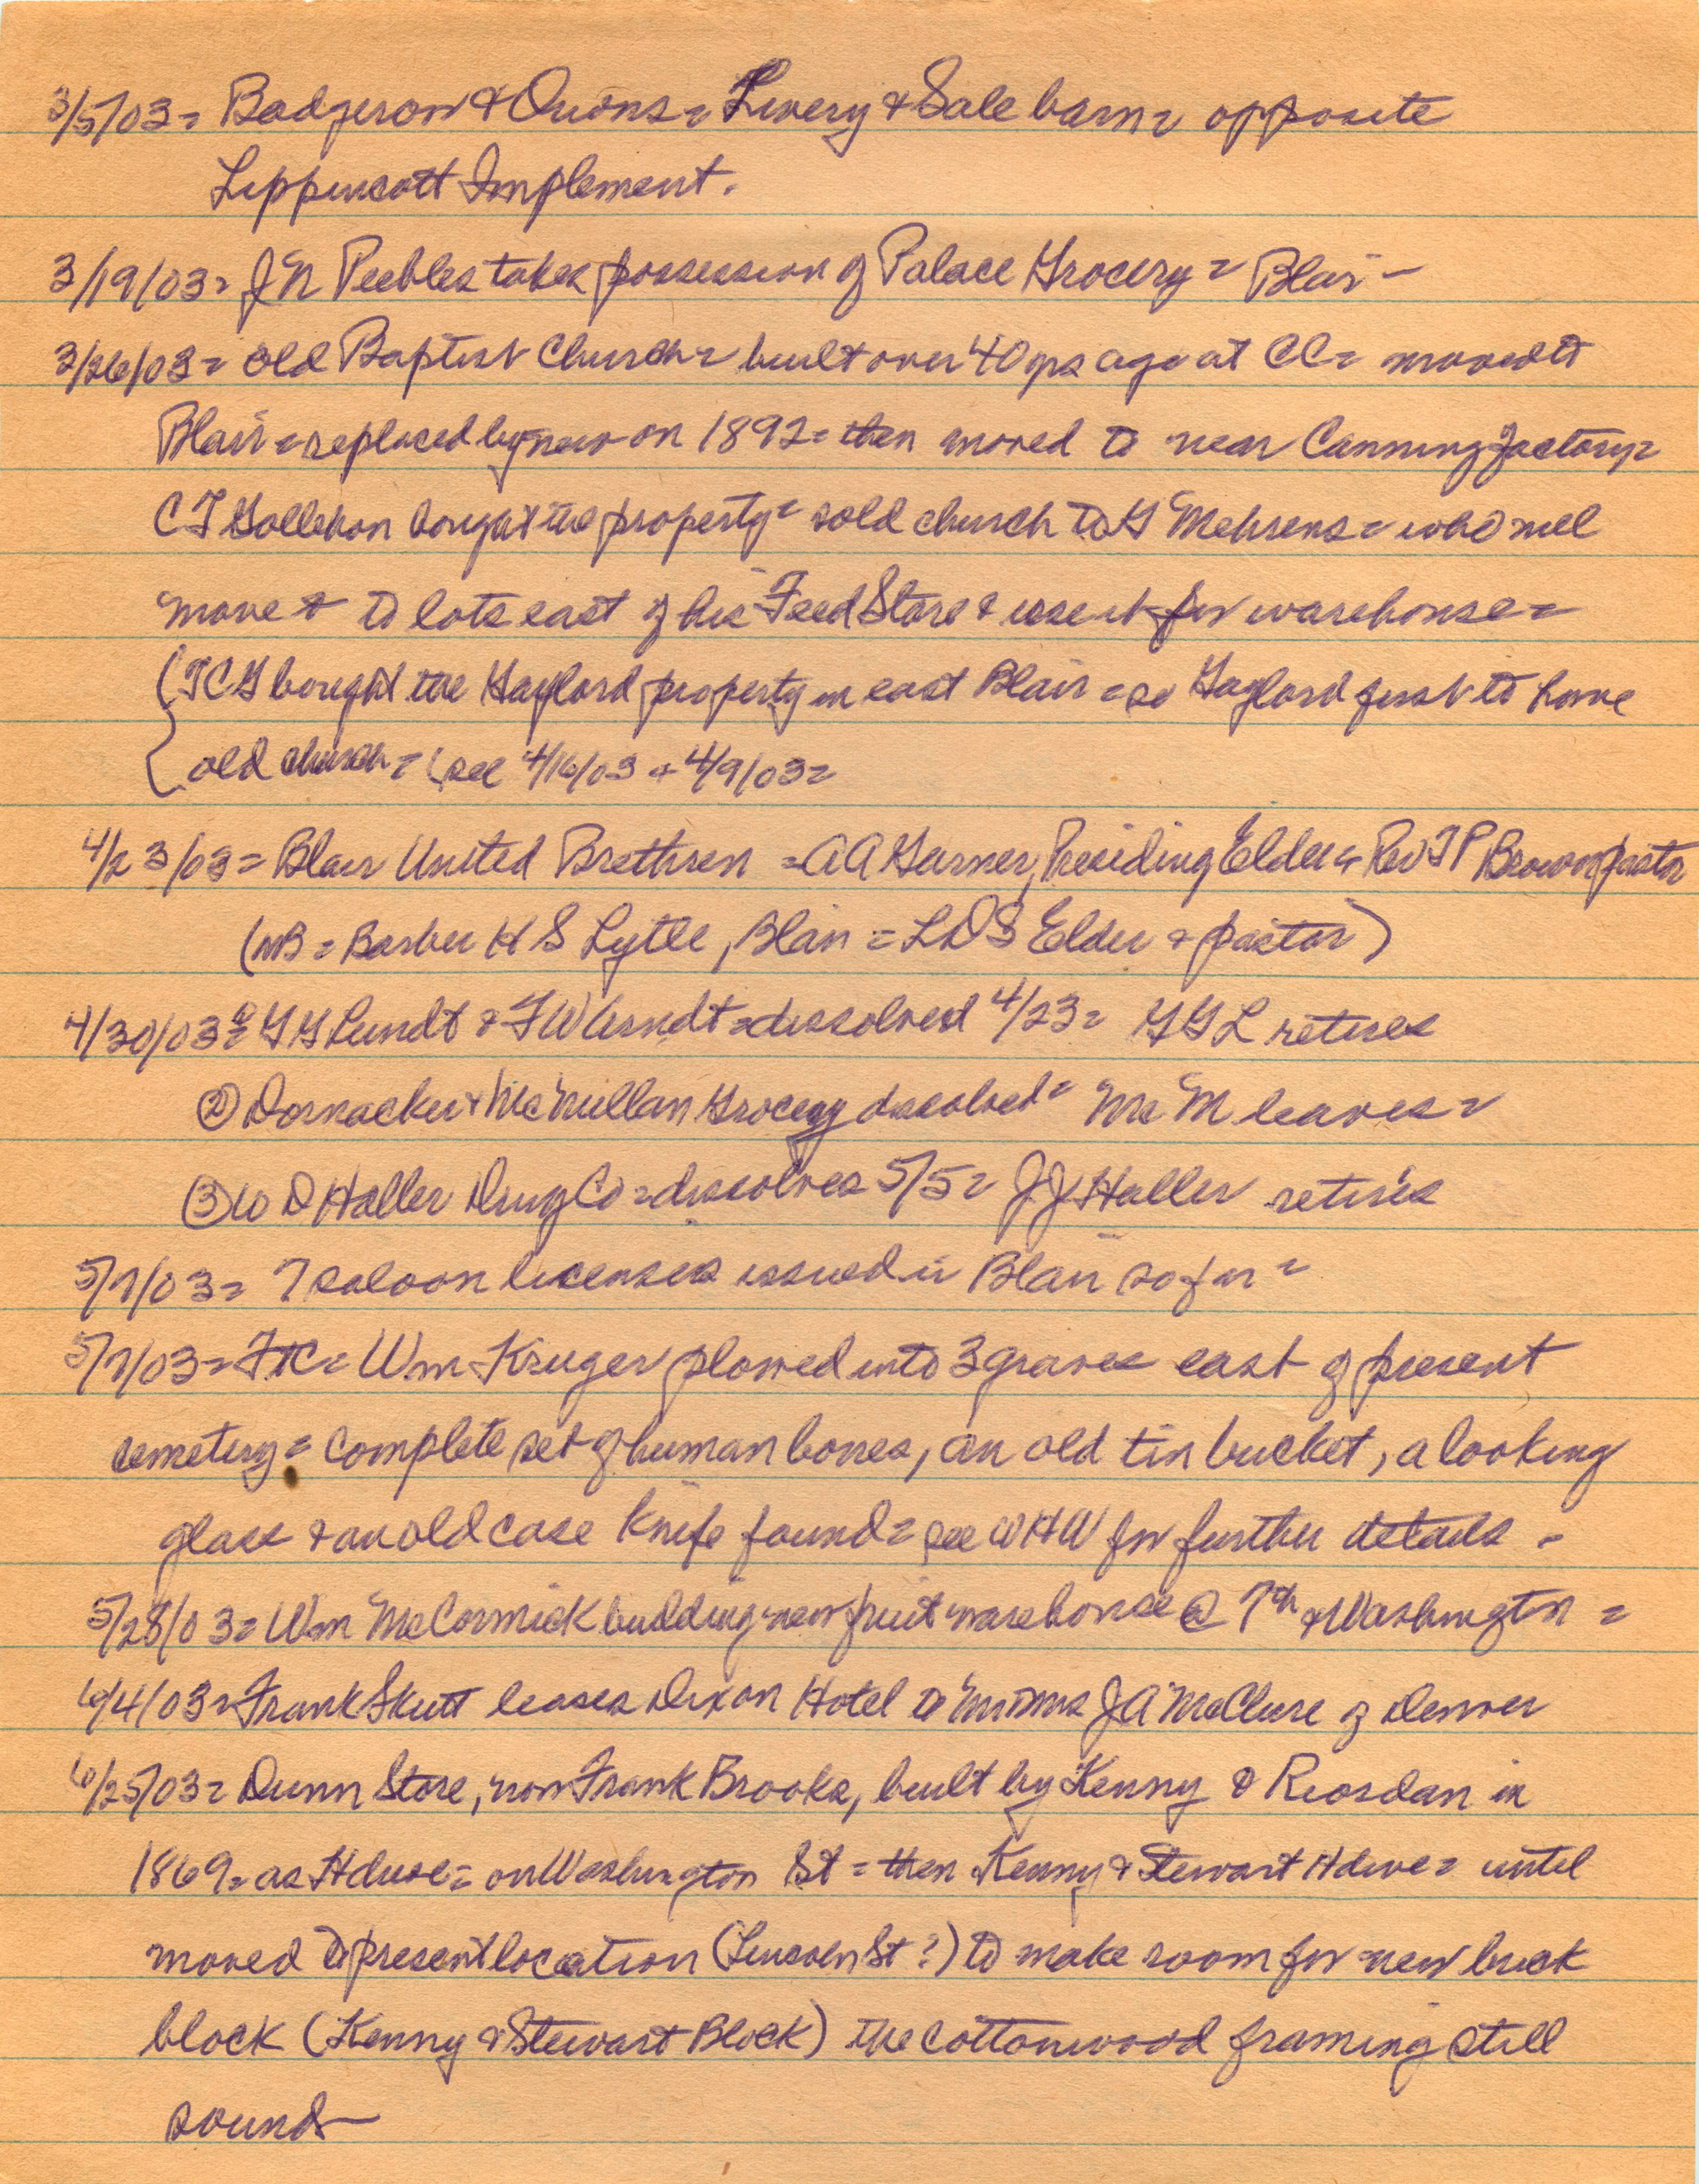 3/5/03= Badgerow & Quions= Livery & Sale barn= opposite
Lippincott Implement.
3/19/03= J N Peebles takes possession of Palace Grocery= Blair-
3/26/03= Old Baptist Church= built over 40 yrs ago at CC= moved to
Blair= replaced by new on 1892= then moved to near Canning factory=
C T Gollehon bought the property= sold church to G Mehrens= who will
move it to lots east of his Feed Store & use it for warehouse=
(TCG bought the Gaylord property in east Blair= so Gaylord first to have
old church= (see 4/16/03 & 4/9/03=
4/23/03= Blair United Brethren =AA Garner, Presiding Elder & Rev T P Brown pastor
(NB= Barber H S Lytle, Blair = LDS Elder & pastor)
4/30/03= G G Lundt & F W Arndt= dissolved 4/23= G G L retires
② Dornacker & McMillan Grocery dissolved= Mc M leaves=
③ W D Haller Drug Co= dissolves 5/5= J J Haller retires
5/7/03= 7 saloon licenses issued in Blair so far=
5/7/03= Ft C= Wm Kruger plowed into 3 graves east of present
cemetery= complete set of human bones, an old tin bucket, a looking
glass & an old case knife found= see WHW for further details -
5/28/03= Wm McCormick building new fruit warehouse @ 7th & Washington =
6/4/03= Frank Skutt leases Dixon Hotel to Mr & Mrs J A McClure of Denver
6/25/03= Dunn Store, now Frank Brooks, built by Kenny & Riordan in
1869= as Hdwre= on Washington St= then Kenny & Stewart Hdwe= until
moved to present location (Lincoln St?) to make room for new brick
block (Kenny & Stewart Block) the cottonwood framing still
sound-